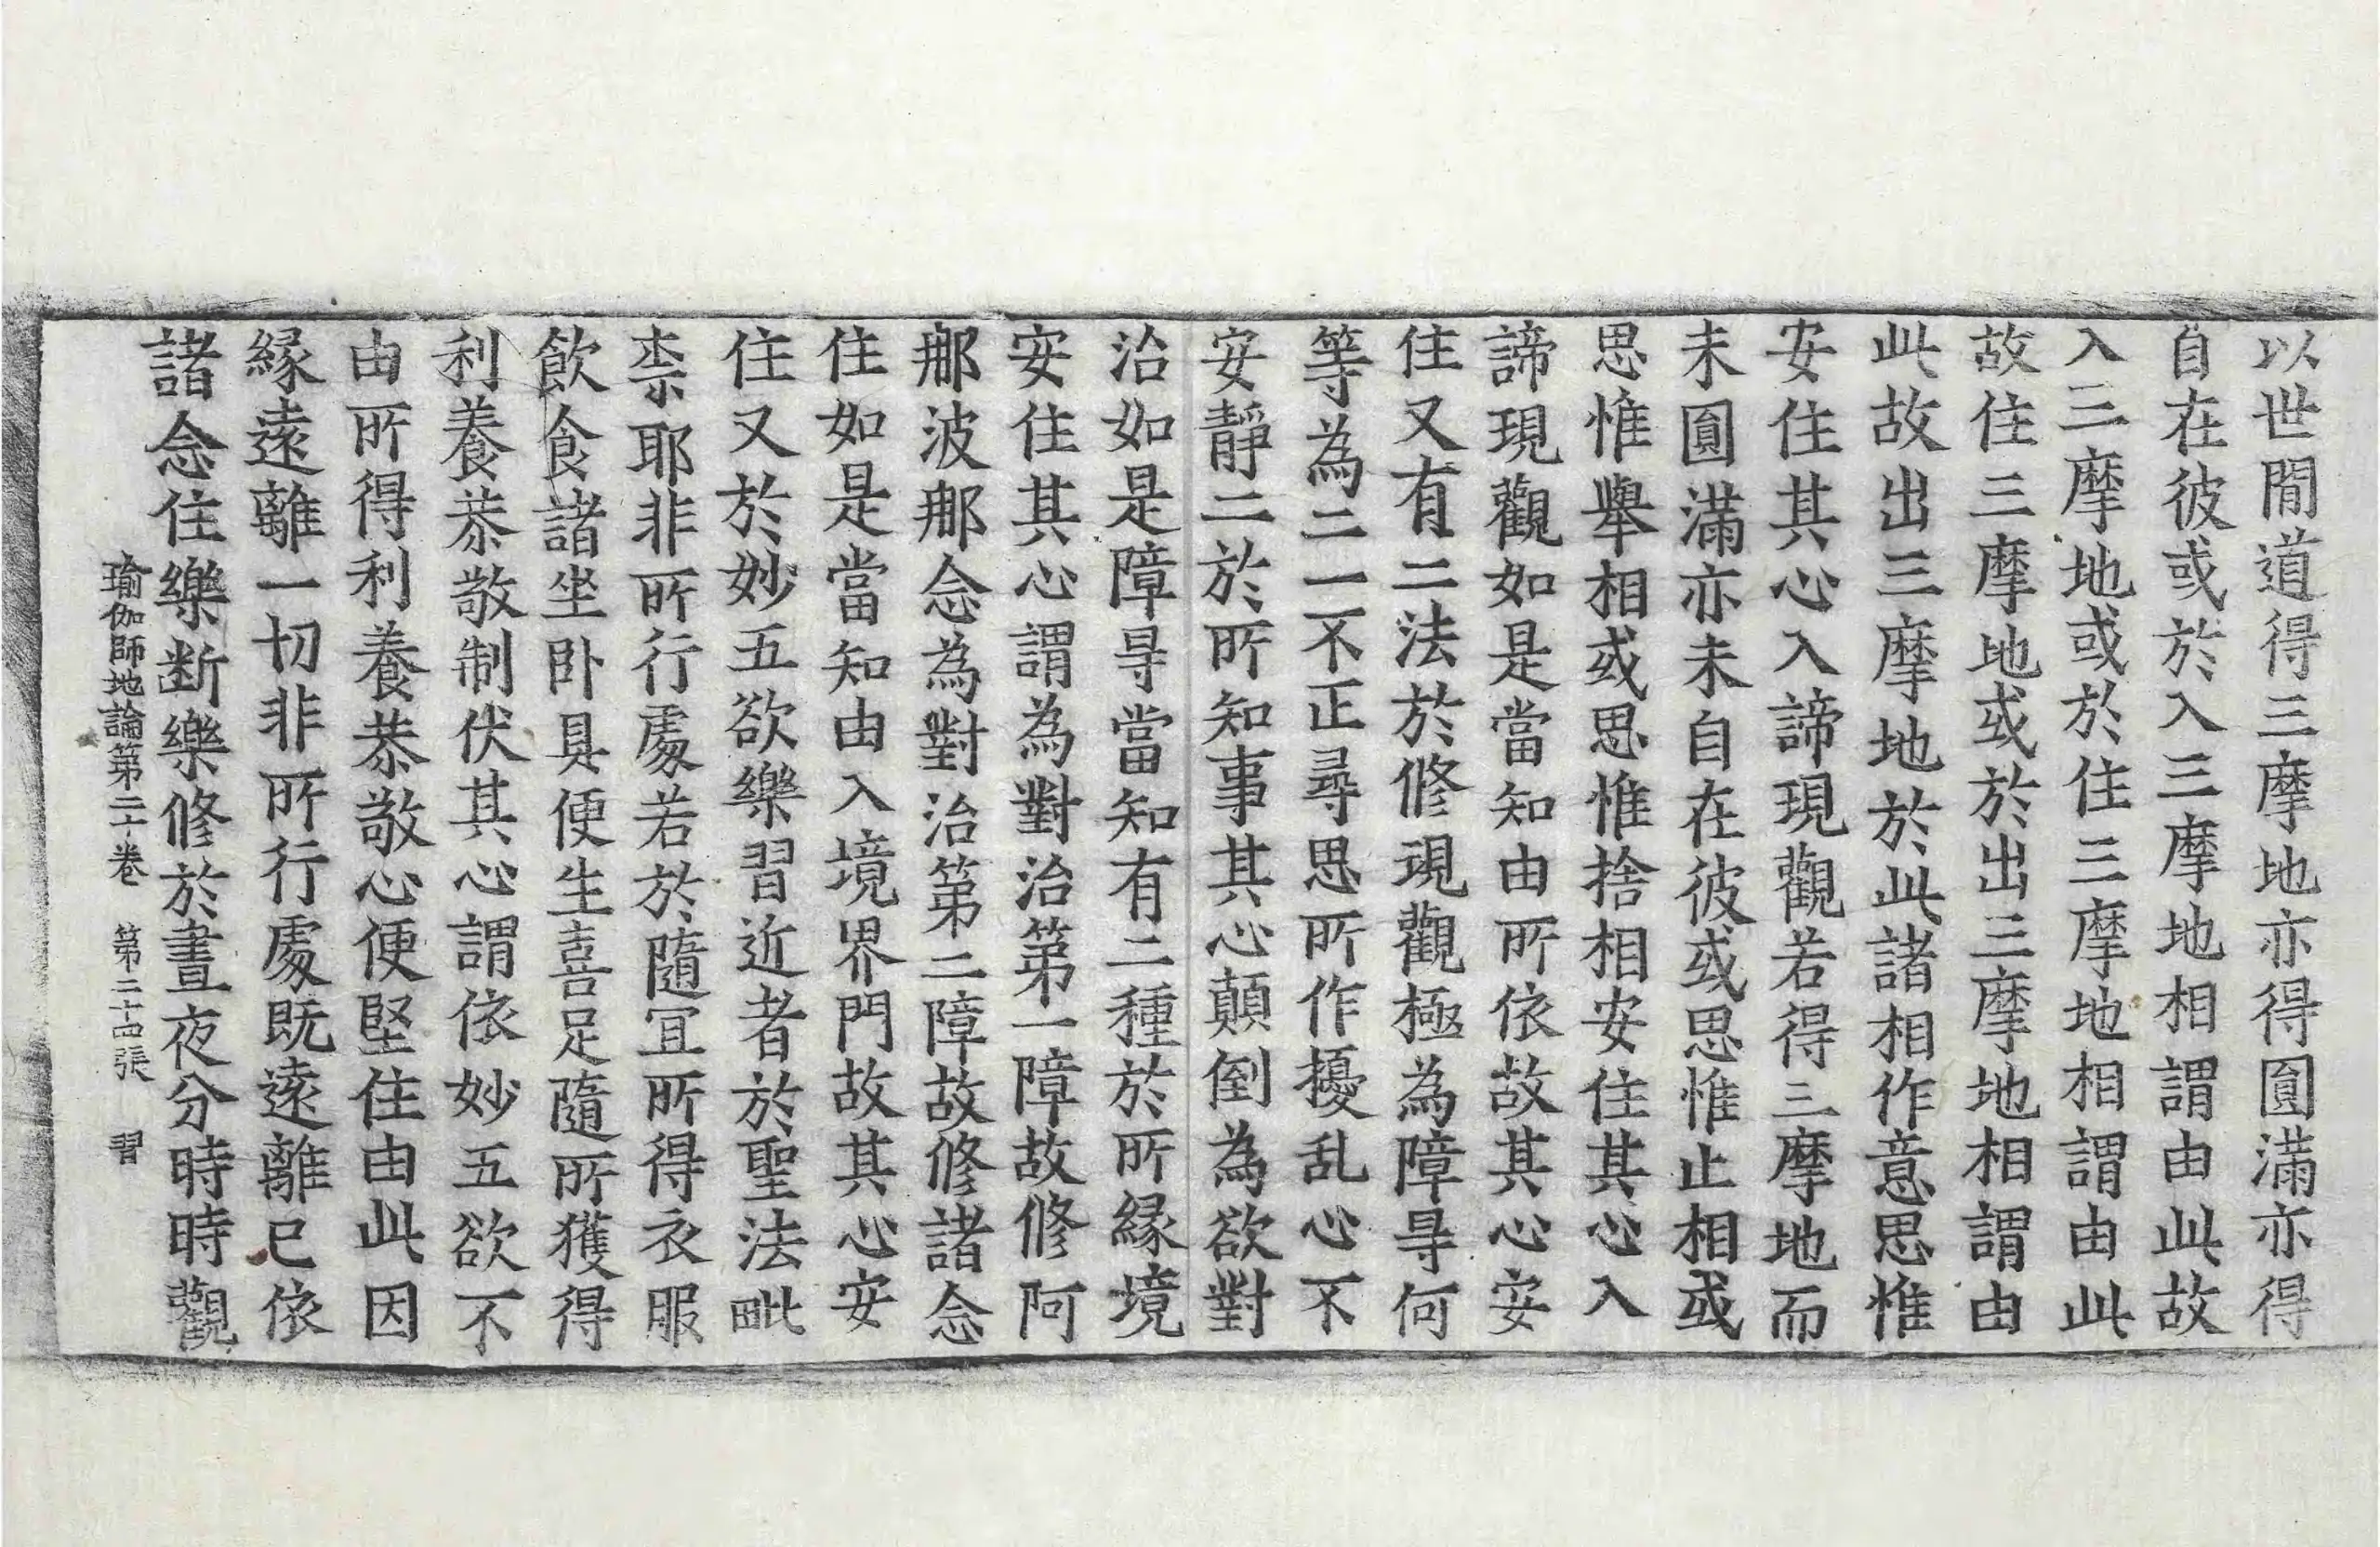 以世閒道得三摩地亦得圓滿亦得
自在彼或於入三摩地相謂由此故
入三摩地或於住三摩地相謂由此
故住三摩地或於出三摩地相謂由
此故出三摩地於此諸相作意思惟
安住其心入諦現觀若得三摩地而
未圓滿亦未自在彼或思惟止相或
思惟舉相或思惟捨相安住其心入
諦現觀如是當知由所依故其心安
住又有二法於修現觀極為障㝵何
等為二一不正尋思所作擾乱心不
安靜二於所知事其心顛倒為欲對
治如是障㝵當知有二種於所緣境
安住其心謂為對治第一障故修阿
那波那念為對治第二障故修諸念
住如是當知由入境界門故其心安
住又於妙五欲樂習近者於聖法毗
柰耶非所行處若於隨宜所得衣服
飲食諸坐卧具便生喜足隨所獲得
利養恭敬制伏其心謂依妙五欲不
由所得利養恭敬心便堅住由此因
緣遠離一切非所行處既遠離已依
諸念住樂断樂修於晝夜分時時觀
瑜伽師地論第二十卷 第二十四張 習